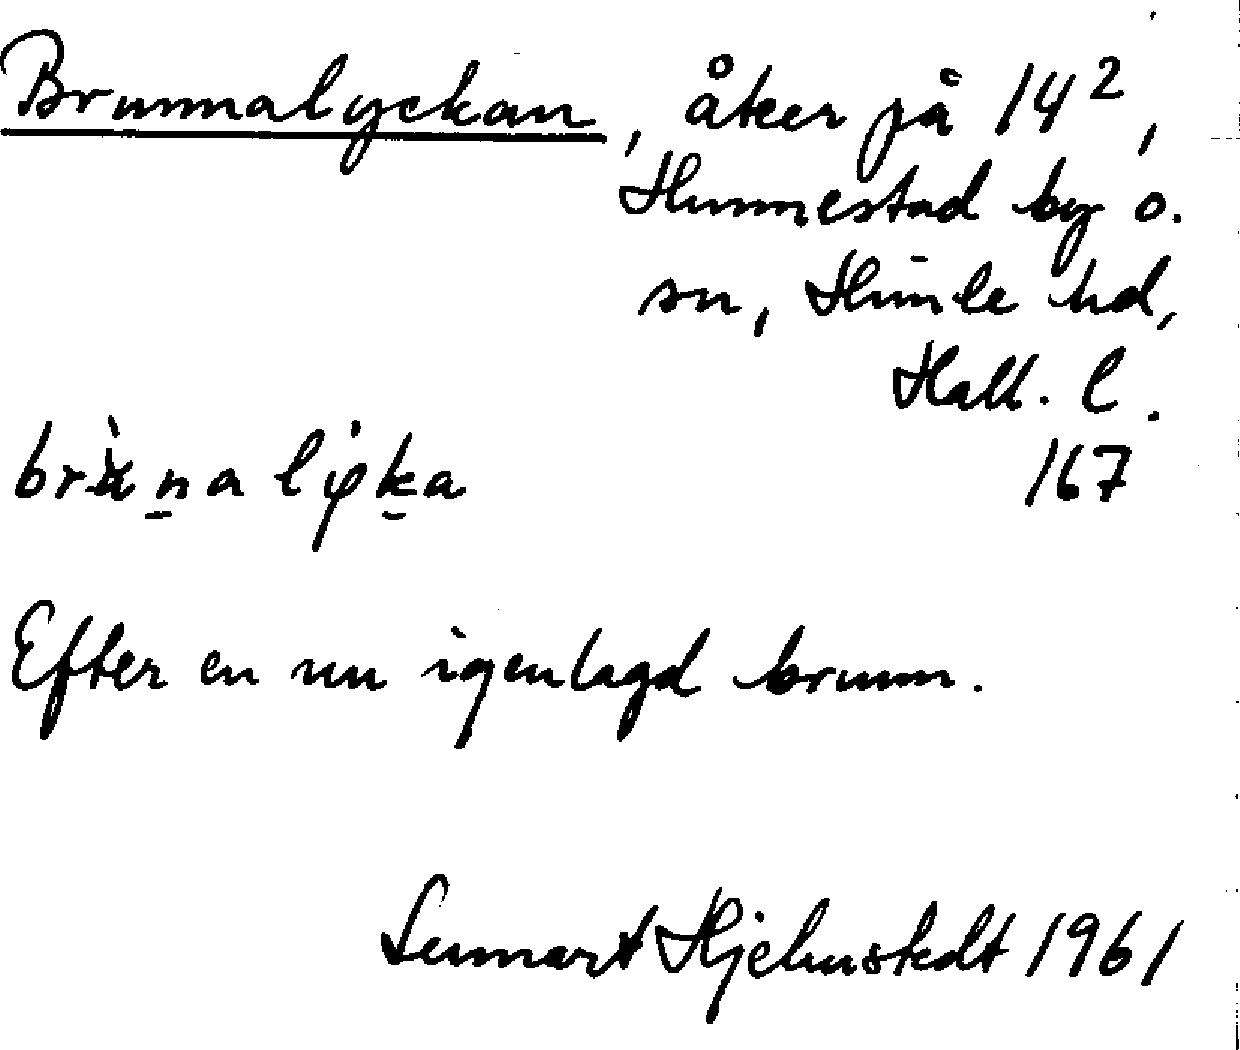 Brunnalyckan, åker på 14²,
Hunnestad by o.
sn, Himle hd,
Hall. l.
167
Efter en nu igenlagd brunn.
Lennart Hjelmstedt 1961